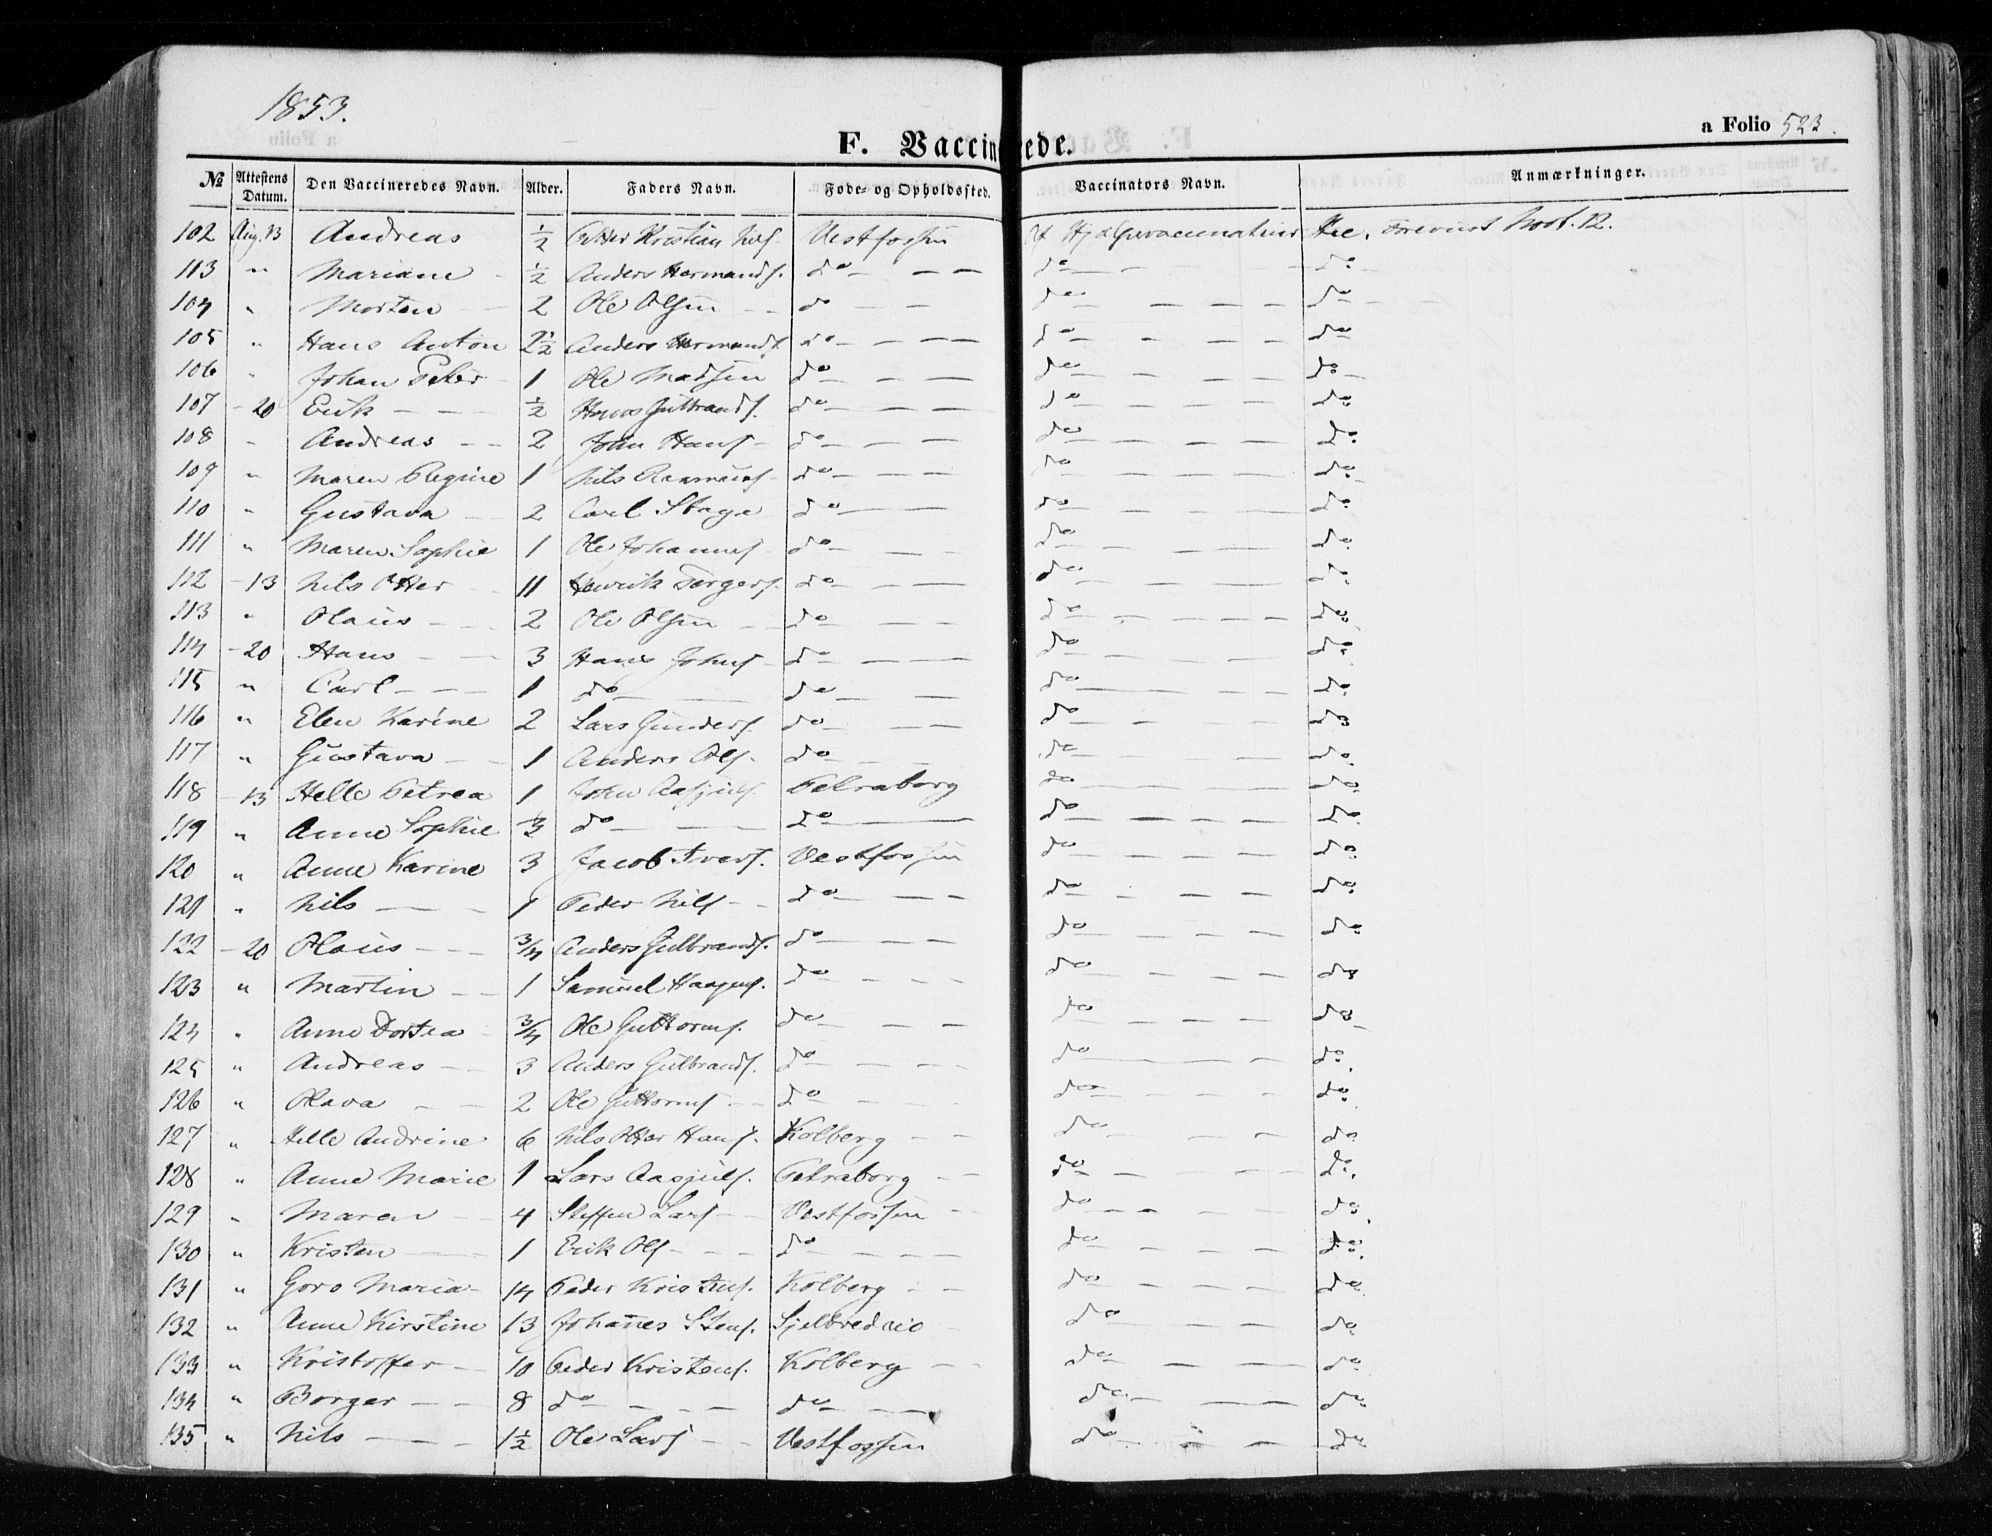 1853.
a Folio 523.
F. Vaccinerede.
No Attestens Datum. Den Vaccineredes Navn. Alder. Faders Navn. Føde- og Opholdssted. Vaccinators Navn. Anmærkninger.
102 Aug. 13 Andreas ½ Otter Kristian Nils. Vestfossen Af Hjælpevaccinateur Forevist Prot. 12.
113 " Mariane - ½ Anders Hermands. do do do
104 " Morten 2 Ole Olsen do do do
105 " Hans Anton 2½ Anders Hermands. do do do
106 " Johan Peter 1 Ole Madsen do do do
107 - 20 Erik ½ Hans Gulbrands. do do do
108 " Andreas 2 John Hans. do do do
109 " Maren Regine 1 Nils Rasmus. do do do
110 " Gustava 2 Carl Stage do do do
111 " Maren Sophie 1 Ole Johannes. do do do
112 - 13 Nils Otter 11 Henrik Torgers. do do do
113 " Olaus 2 Ole Olsen do do do
114 - 20 Hans 3 Hans Johns. do do do
115 " Carl 1 do do do do
116 " Elen Karine 2 Lars Gunders. do do do
117 " Gustava 1 Anders Ols. do do do
118 - 13 Helle Petrea 1 John Aasjuls. Petraborg do do
119 " Anne Sophie do do do do
120 " Anne Karine 3 Jacob Ivers. Vestfossen do do
121 " Nils 1 Peder Nils. do do do
122 - 20 Olaus 3/4 Anders Gulbrands. do do do
123 " Martin 1 Samuel Haagens. do do do
124 " Anne Dortea 3/4 Ole Guttorms. do do do
125 " Andreas 3 Anders Gulbrands. do do do
126 " Olava 2 Ole Guttorms. do do do
127 " Helle Andrine 6 Nils Otter Hans. Kolberg do do
128 " Anne Marie 1 Lars Aasjuls. Petraborg do do
129 " Maren 4 Steffen Lars. Vestfossen do do
130 " Kristen 1 Erik Ols. do do do
131 " Goro Maria 14 Peder Kristens. Kolberg do do
132 " Anne Kirstine 13 Johanes Stens. do do
133 " Kristoffer 10 Peder Kristens. Kolberg do do
134 " Borger 8 do do do do
135 " Nils 1½ Ole Lars. Vestfossen do do